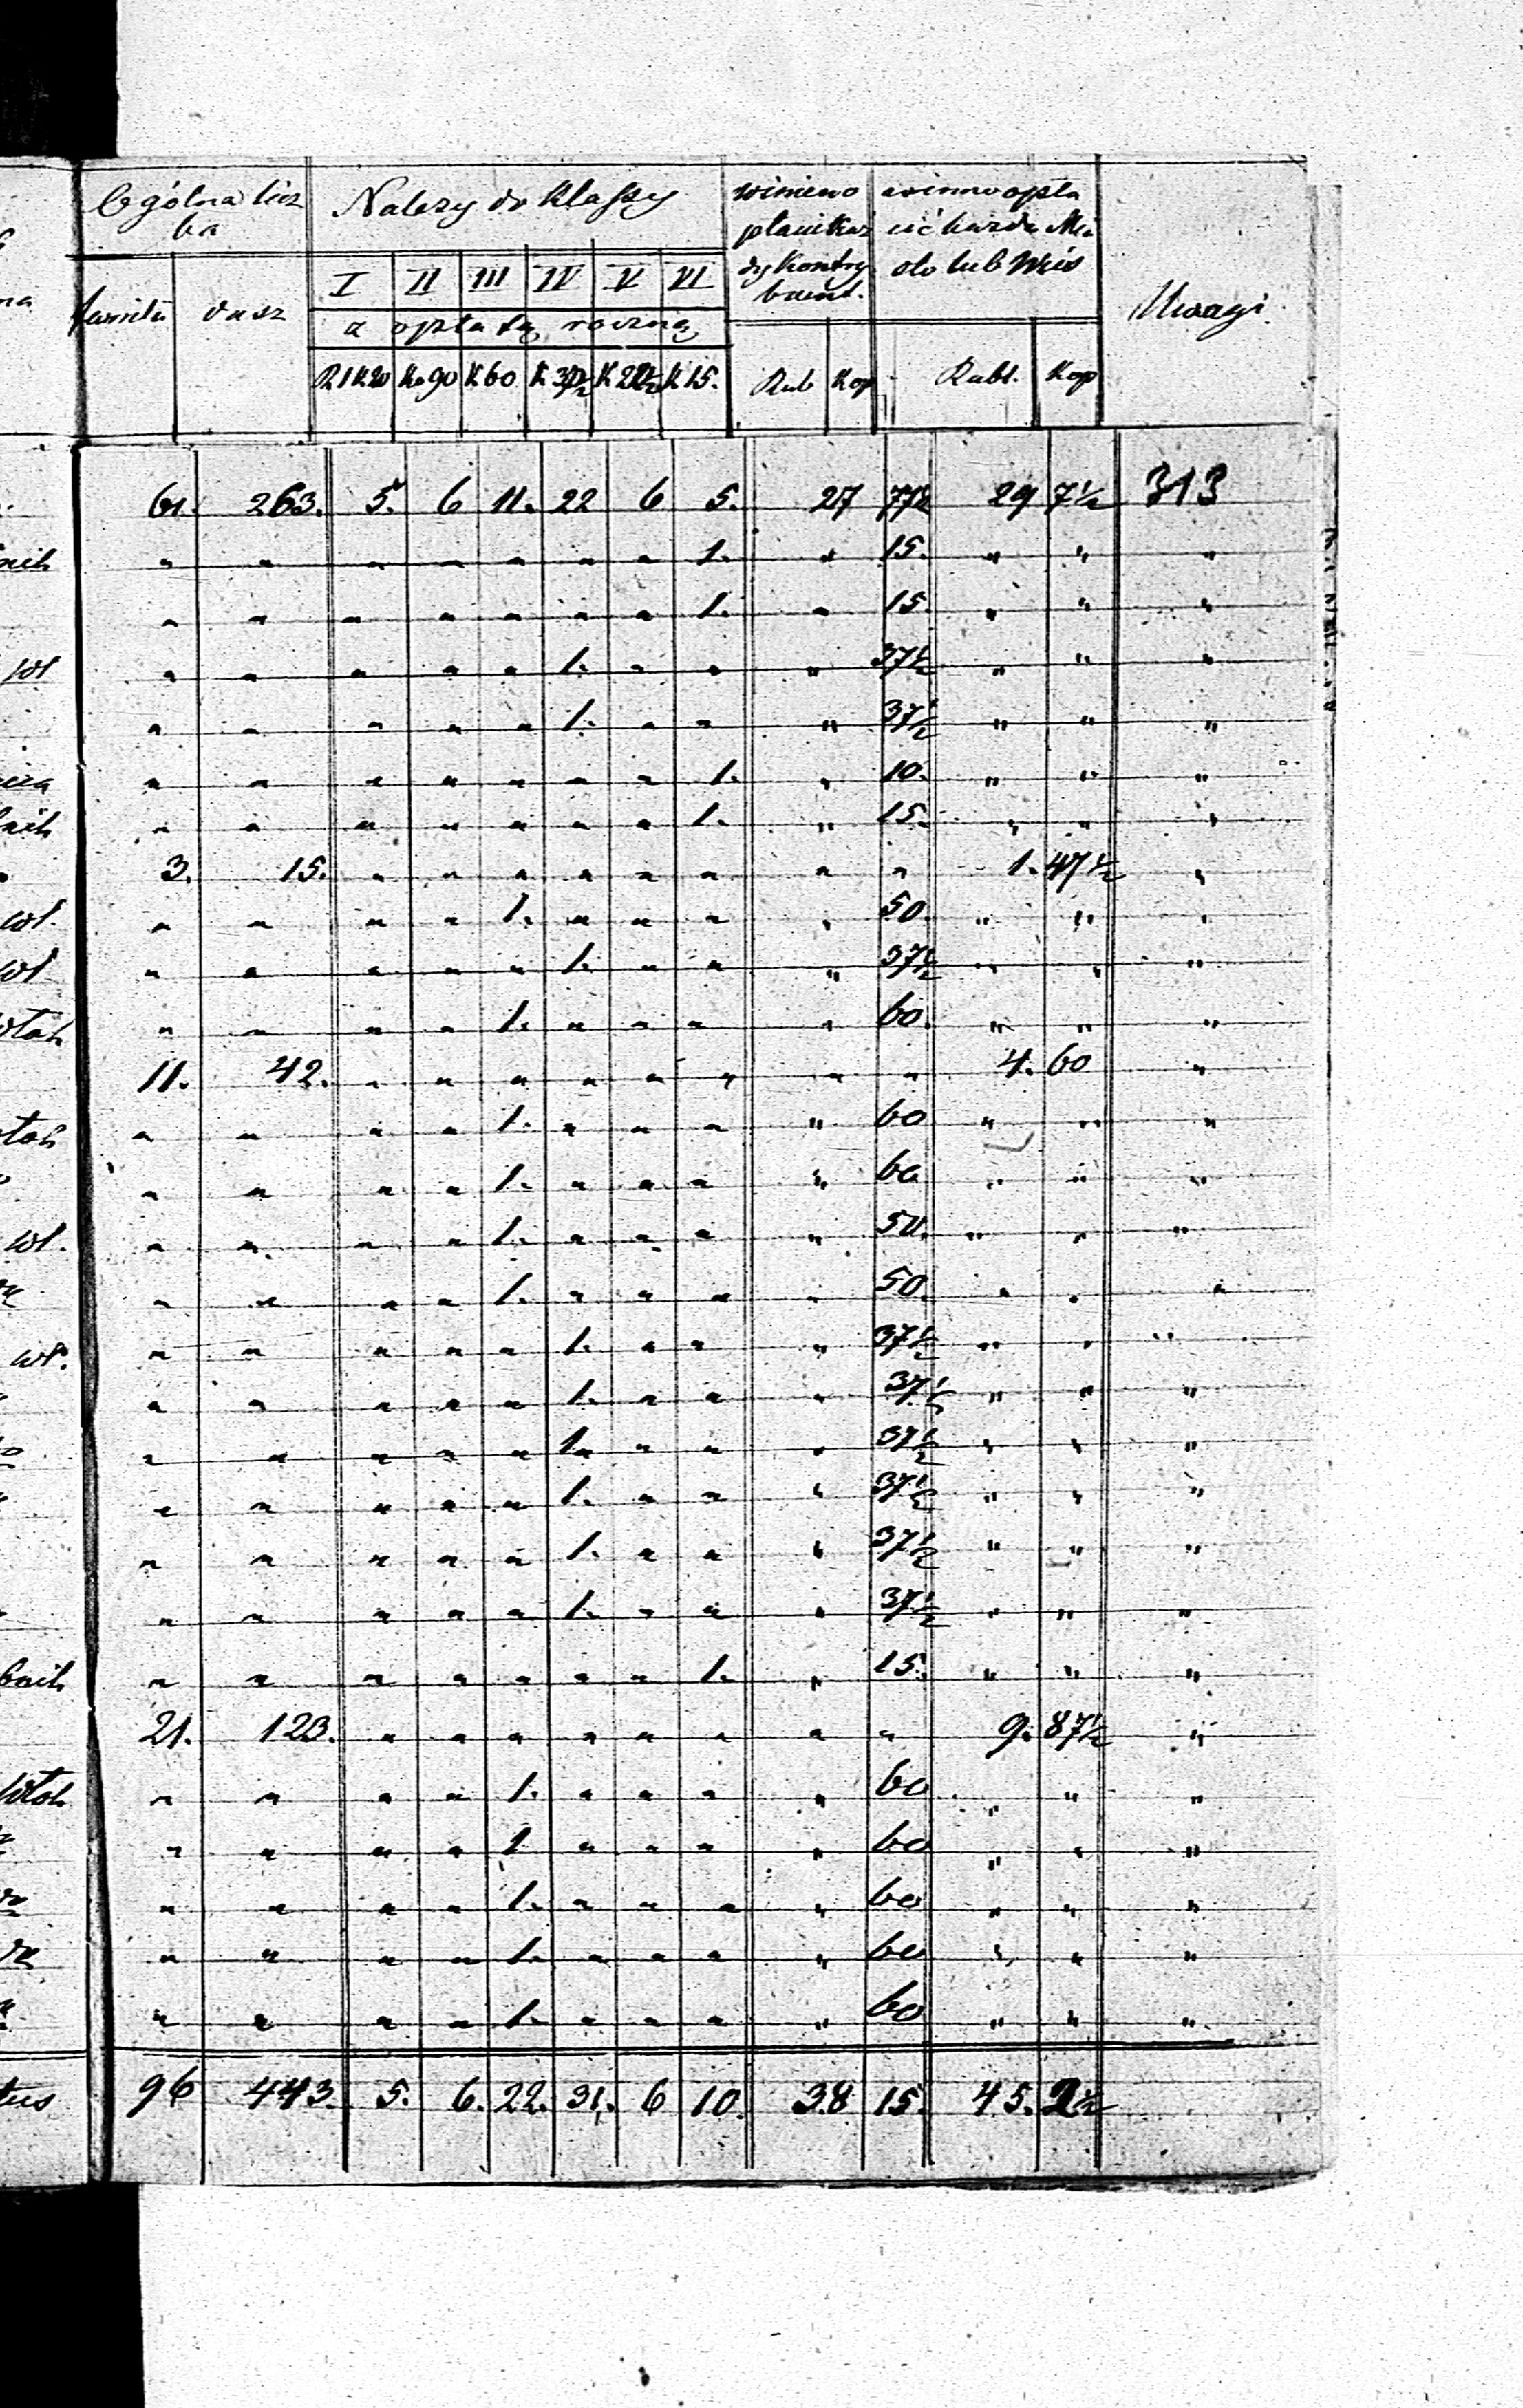 Ogólna licz
ba
Należy do Klassy
winien
płacić każ
dy Kontry
buent.
winno opła
cić każde Mia
sto lub Wieś
Uwagi.
familii dusz
I II III IV V VI
z opłatą roczną
R1K20 Ko90 K60 K37½ K22½ K15. Rub Kop Rubl. Kop
61. 263. 5. 6 11. 22 6 5. 27 77½ 29 7½ 313
nich " " " " " " " 1. " 15. " " "
" " " " " " " 1. " 15. " " "
wł " " " " " 1. " " " 37½ " " "
" " " " " 1. " " " 37½ " " "
" " " " " " " 1. " 10. " " "
" " " " " " " 1. " 15. " " "
3. 15. " " " " " " " " 1. 47½ "
wł. " " " " 1. " " " " 50. " " "
wł " " " " " 1. " " " 37½ " " "
" " " " 1. " " " " 60. " " "
11. 42. " " " " " " " " 4. 60 "
" " " " 1. " " " " 60 " " "
" " " " " 1. " " " " 60 " " "
wł. " " " " 1. " " " " 50. " " "
" " " " 1. " " " " 50. " " "
wł. " " " " " 1. " " " 37½ " " "
" " " " " " 1. " " " 37½ " " "
" " " " " 1. " " " 37½ " " "
" " " " " " 1. " " " 37½ " " "
" " " " " 1. " " " 37½ " " "
" " " " " 1. " " " 37½ " " "
" " " " " " " 1. " 15. " " "
21. 123. " " " " " " " " 9. 87½ "
" " " " 1. " " " " 60 " " "
" " " " " 1 " " " " 60 " " "
" " " " 1. " " " " 60 " " "
" " " " 1. " " " " 60 " " "
" " " " " 1. " " " " 60 " " "
tus 96 443. 5. 6. 22. 31. 6 10. 38 15. 45. 2½